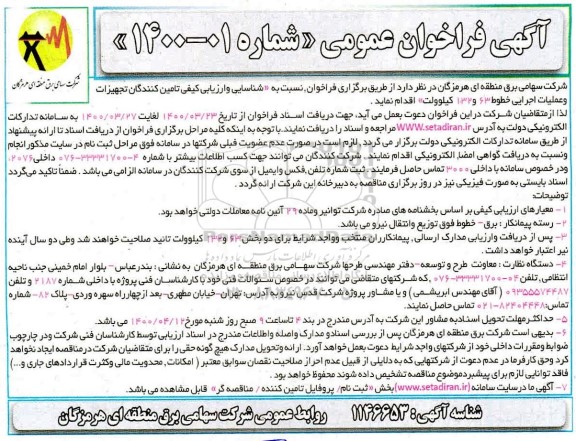 آگهی فراخوان عمومی «شماره ۰۱-۱۴۰۰»
شرکت سهامی برق منطقه ای هرمزگان
شرکت سهامی برق منطقه ای هرمزگان در نظر دارد از طریق برگزاری فراخوان، نسبت به «شناسایی وارزیابی کیفی تامین کنندگان تجهیزات
وعملیات اجرایی خطوط ۶۳ و۱۳۲ کیلوولت» اقدام نماید.
لذا ازمتقاضیان شرکت در این فراخوان دعوت بعمل می آید، جهت دریافت اسناد فراخوان از تاریخ ۱۴۰۰/۰۳/۲۳ لغایت ۱۴۰۰/۰۳/۲۷ به سامانه تدارکات
الکترونیکی دولت به آدرس WWW.setadiran.ir مراجعه و اسناد را دریافت نمایند. با توجه به اینکه کلیه مراحل برگزاری فراخوان از دریافت اسناد تا ارائه پیشنهاد
از طریق سامانه تدارکات الکترونیکی دولت برگزار می گردد، لازم است در صورت عدم عضویت قبلی شرکتها در سامانه فوق مراحل ثبت نام در سایت مذکور انجام
ونسبت به دریافت گواهی امضا الکترونیکی اقدام نمایند. شرکت کنندگان می توانند جهت کسب اطلاعات بیشتر با شماره ۴-۳۳۳۳۱۷۰۰-۰۷۶ داخلی ۲۰۷۶،
ودر خصوص سامانه با داخلی ۳۰۰۰ تماس حاصل فرمایند. ثبت شماره تلفن، فکس وایمیل از سوی شرکت کنندگان در سامانه الزامی می باشد. ضمناً تاکید می‌گردد
اسناد بایستی به صورت فیزیکی نیز در روز برگزاری مناقصه به دبیرخانه این شرکت ارائه گردد.
توضیحات:
۱- معیارهای ارزیابی کیفی بر اساس بخشنامه های صادره شرکت توانیر وماده ۲۹ آئین نامه معاملات دولتی خواهد بود.
۲- رسته پیمانکار: برق- خطوط فوق توزیع وانتقال نیرو می باشد.
۳- پس از دریافت وارزیابی مدارک ارسالی، پیمانکاران منتخب وواجد شرایط برای دو بخش ۶۳ و۱۳۲ کیلووات تائید صلاحیت خواهند شد وطی دو سال آینده
نیز اعتبار خواهد داشت.
۴- دستگاه نظارت: معاونت طرح و توسعه-دفتر مهندسی طرحها شرکت سهامی برق منطقه ای هرمزگان به نشانی: بندرعباس- بلوار امام خمینی جنب ناحیه
انتظامی، تلفن ۰۴-۳۳۳۳۱۷۰۰-۰۷۶، که شرکتهای متقاضی می توانند در خصوص سئوالات فنی خود با کارشناسان فنی پروژه با داخلی شماره ۲۱۸۷ و تلفن
۰۹۳۵۵۵۷۴۴۸۷ (آقای مهندس ابریشمی) و با مشاور پروژه شرکت قدس نیرو به آدرس: تهران-خیابان مطهری- بعد از چهارراه سهروردی- پلاک ۸۲-شماره
تماس: ۸۲۴۰۴۴۴۸-۰۲۱ تماس حاصل نمایند.
۵- حداکثر مهلت تحویل اسناد به مشاور این شرکت به آدرس مندرج در بند ۴ تا ساعت ۹ صبح روز شنبه مورخ ۱۴۰۰/۰۴/۱۲ می باشد.
۶- بدیهی است شرکت برق منطقه ای هرمزگان پس از بررسی اسناد و مدارک واصله واطلاعات مندرج در اسناد ارزیابی توسط کارشناسان فنی شرکت ودر چارچوب
ضوابط ومقررات داخلی خود از شرکتهای واجد شرایط دعوت بعمل خواهد آورد. ارائه وتحویل مدارک هیچ گونه حقی را برای متقاضیان شرکت در مناقصه ایجاد نخواهد
کرد وحق کارفرما در عدم دعوت از شرکتهایی که به دلایلی از قبیل عدم احراز صلاحیت نقصان سوابق معتبر (امکانات، محدودیت مالی وکثرت قراردادهای جاری و...)
فاقد توانایی لازم برای پیشبرد موضوع مناقصه تشخیص داده شوند محفوظ خواهد بود.
۷- آگهی ما در سایت سامانه (www.setadiran.ir) بخش «ثبت نام/ پروفایل تامین کننده / مناقصه گر» قابل مشاهده می باشد.
شناسه آگهی: ۱۱۴۶۶۵۳ روابط عمومی شرکت سهامی برق منطقه ای هرمزگان